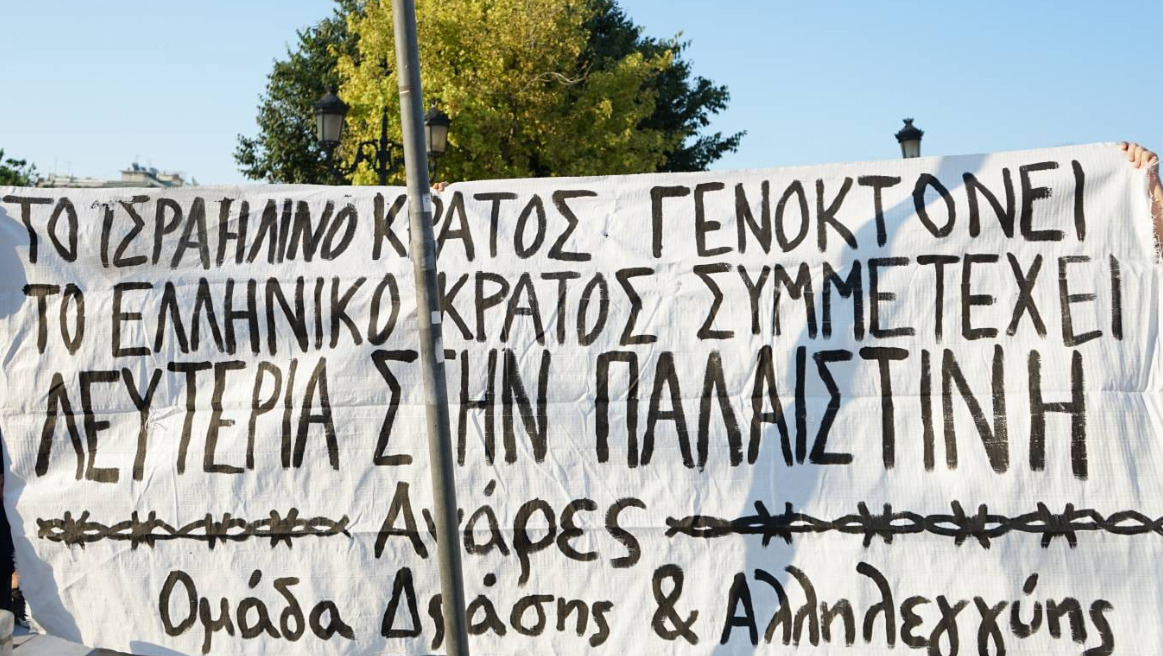 ΤΟ ΙΣΡΑΗΛΙΝΟ ΚΡΑΤΟΣ ΓΕΝΟΚΤΟΝΕΙ
ΤΟ ΕΛΛΗΝΙΚΟ ΚΡΑΤΟΣ ΣΥΜΜΕΤΕΧΕΙ
ΛΕΥΤΕΡΙΑ ΣΤΗΝ ΠΑΛΑΙΣΤΙΝΗ
Ανάρες
Ομάδα Δράσης & Αλληλεγγύης